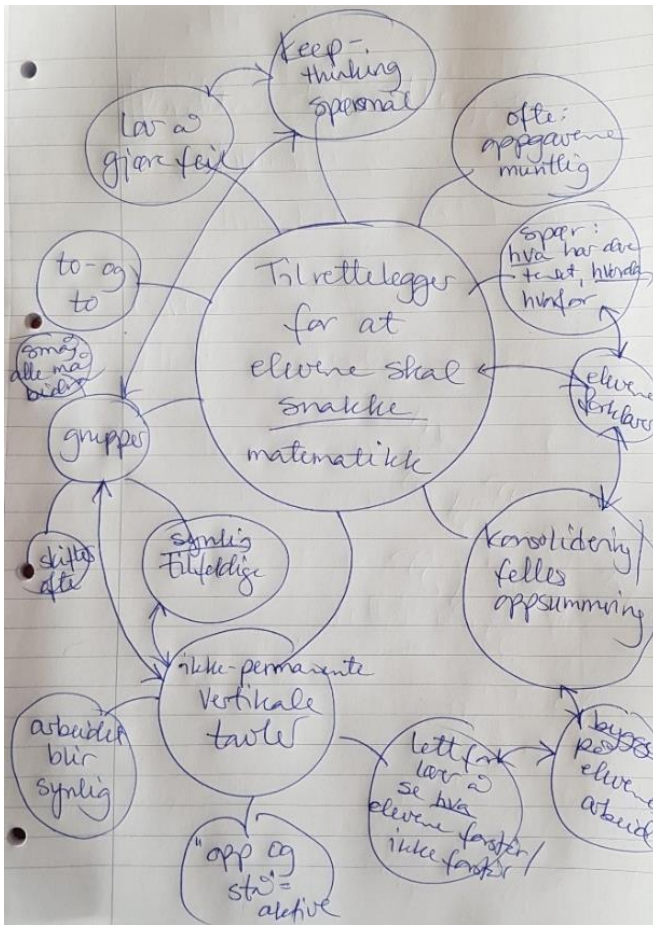 keep-
thinking
spørsmål
lov å
gjøre feil
ofte:
oppgavene
muntlig
spør:
hva har dere
tenkt, hvordan
hvorfor
to- og
to
Tilrettelegger
for at
elevene skal
snakke
matematikk
små,
alle må
bidra
grupper
elevene
forklarer
skiftes
ofte
synlig
tilfeldige
konsolidering/
felles
oppsummering
ikke-permanente
vertikale
tavler
arbeidet
blir
synlig
lett for
lærer å
se hva
elevene forstår/
ikke forstår
bygge
på
elevene
arbeid
"opp og
stå" =
aktive